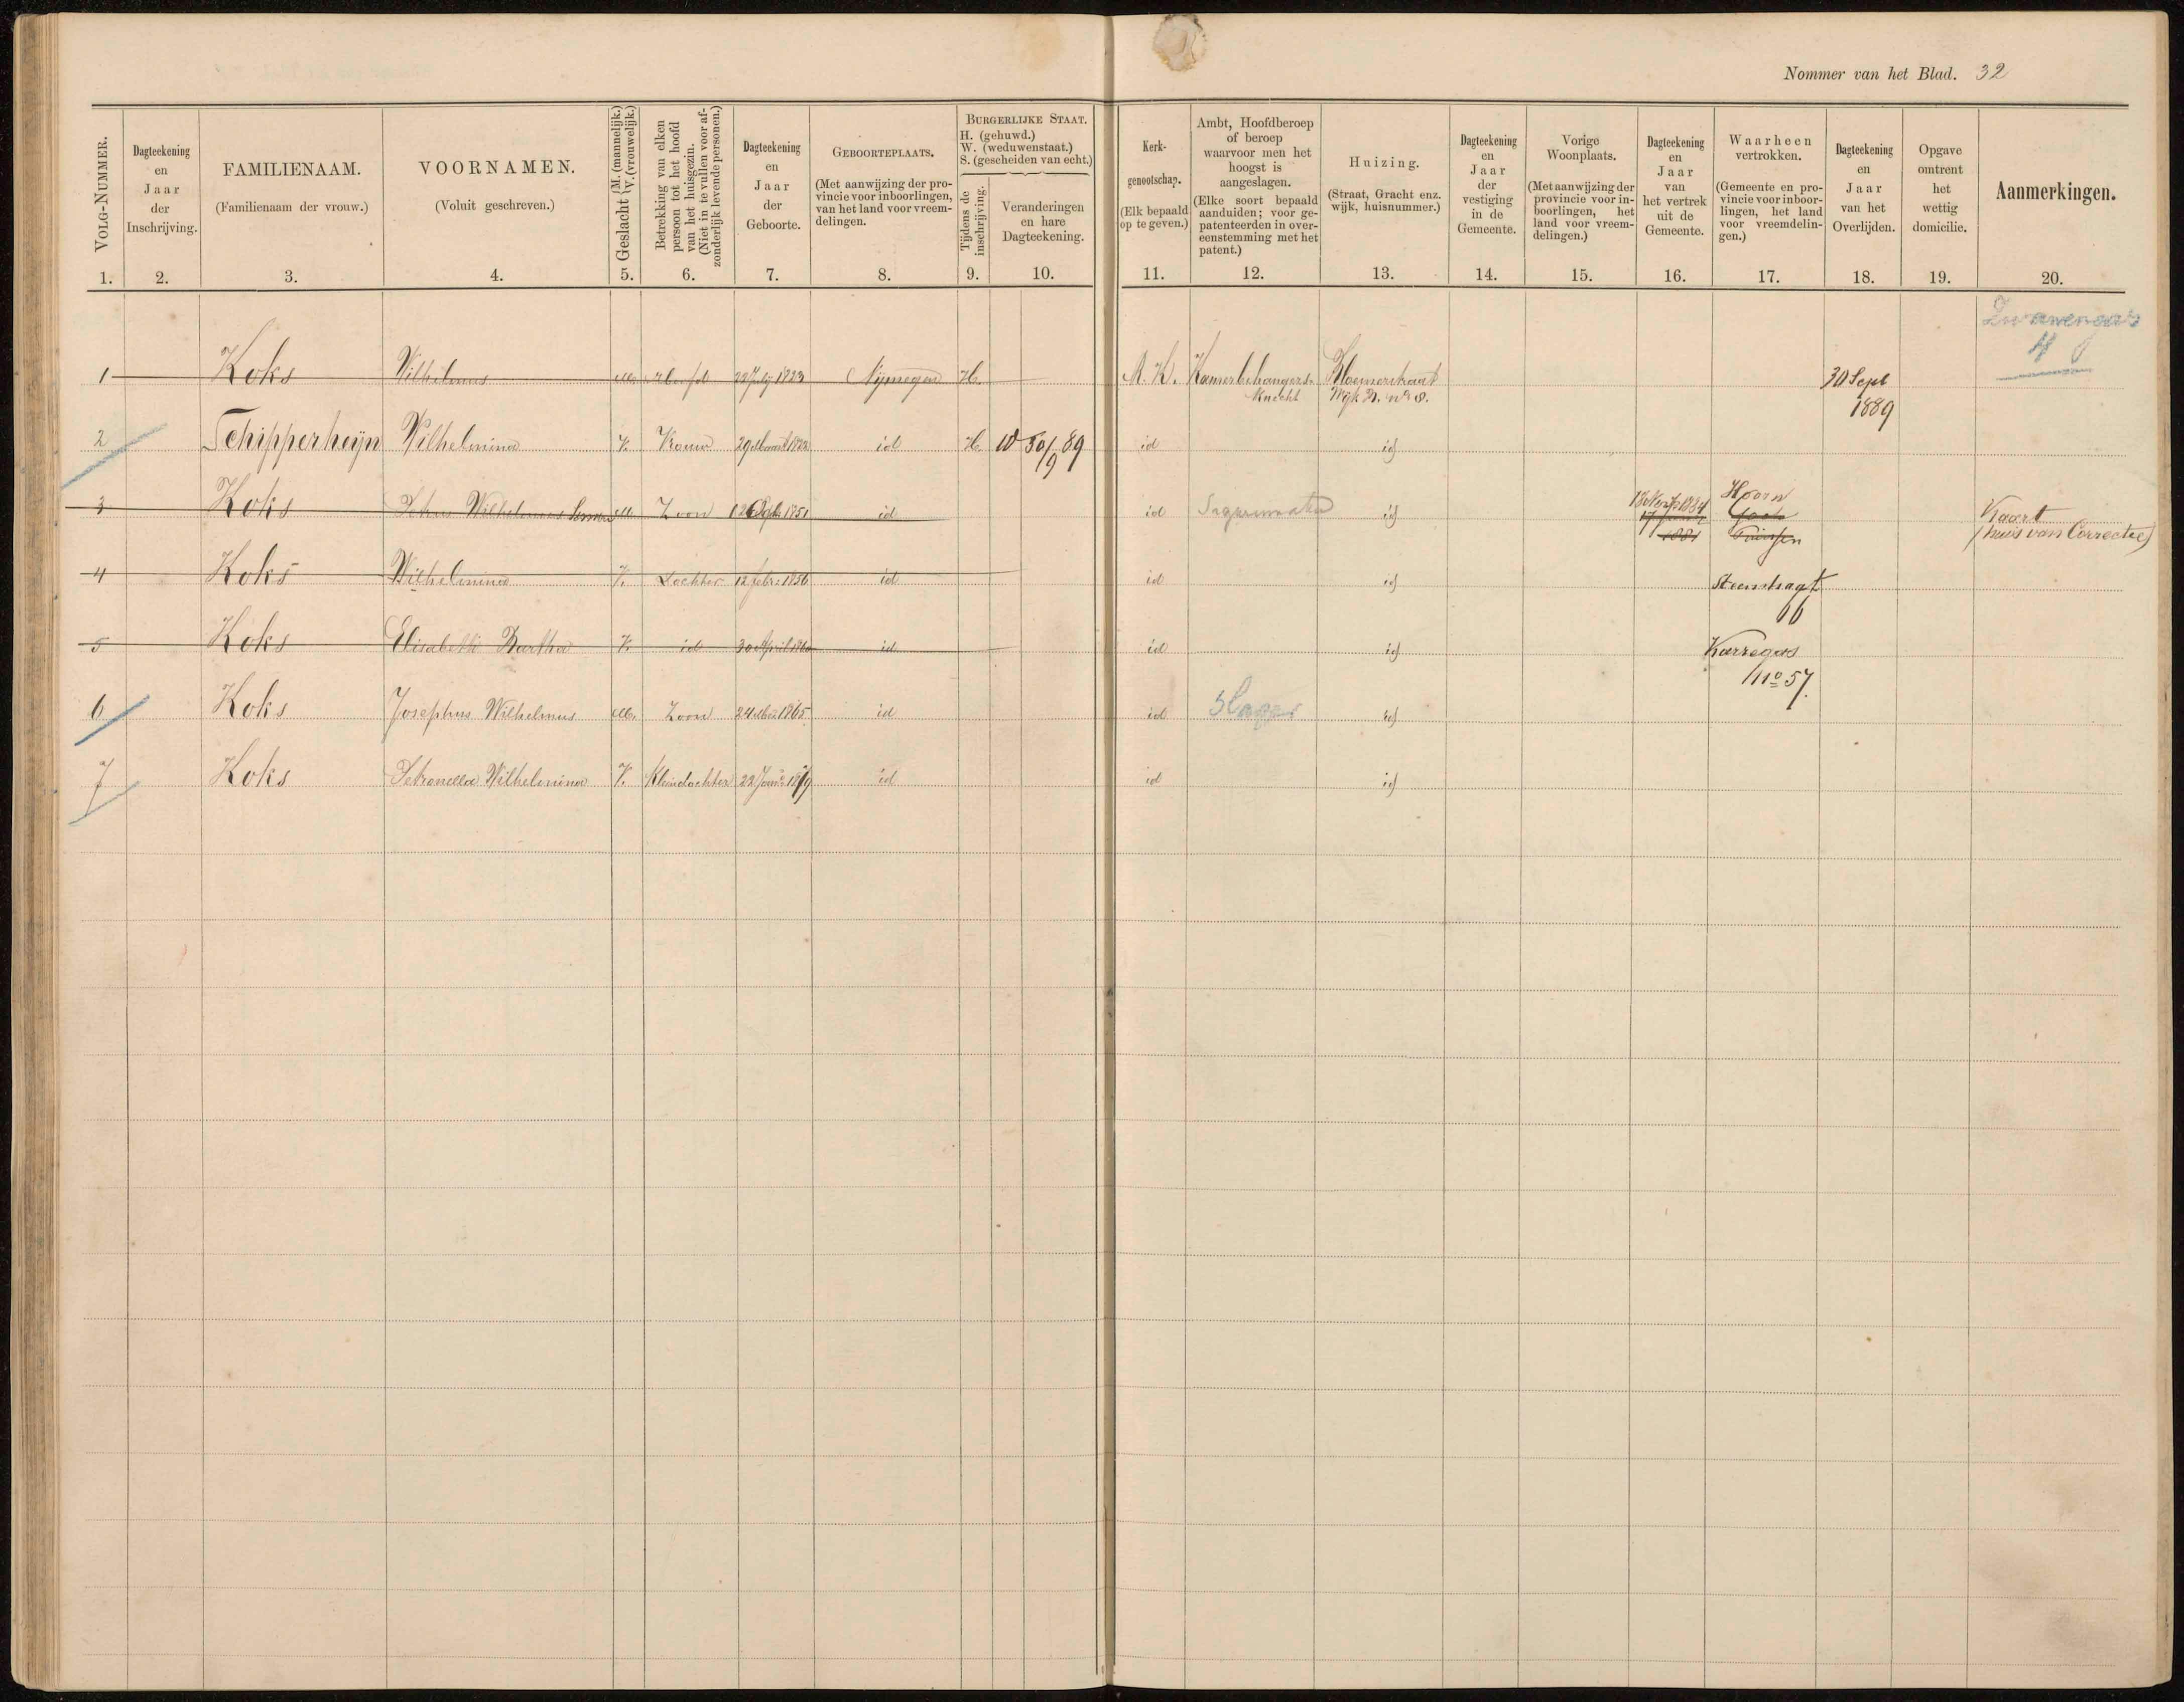 Nommer van het Blad. 32
VOLG-NUMMER.
1.
Dagteekening
en
Jaar
der
Inschrijving.
2.
FAMILIENAAM.
(Familienaam der vrouw.)
3.
VOORNAMEN.
(Voluit geschreven.)
4.
Geslacht { M. (mannelijk.) V. (vrouwelijk.)
5.
Betrekking van elken
persoon tot het hoofd
van het huisgezin.
(Niet in te vullen voor af-
zonderlijk levende personen.)
6.
Dagteekening
en
Jaar
der
Geboorte.
7.
GEBOORTEPLAATS.
(Met aanwijzing der pro-
vincie voor inboorlingen,
van het land voor vreem-
delingen.
8.
BURGERLIJKE STAAT.
H. (gehuwd.)
W. (weduwenstaat.)
S. (gescheiden van echt.)
Tijdens de
inschrijving.
9.
Veranderingen
en hare
Dagteekening.
10.
Kerk-
genootschap.
(Elk bepaald
op te geven.)
11.
Ambt, Hoofdberoep
of beroep
waarvoor men het
hoogst is
aangeslagen.
(Elke soort bepaald
aanduiden; voor ge-
patenteerden in over-
eenstemming met het
patent.)
12.
Huizing.
(Straat, Gracht enz.
wijk, huisnummer.)
13.
Dagteekening
en
Jaar
der
vestiging
in de
Gemeente.
14.
Vorige
Woonplaats.
(Met aanwijzing der
provincie voor in-
boorlingen, het
land voor vreem-
delingen.)
15.
Dagteekening
en
Jaar
van
het vertrek
uit de
Gemeente.
16.
Waarheen
vertrokken.
(Gemeente en pro-
vincie voor inboor-
lingen, het land
voor vreemdelin-
gen.)
17.
Dagteekening
en
Jaar
van het
Overlijden.
18.
Opgave
omtrent
het
wettig
domicilie.
19.
Aanmerkingen.
20.
1 Koks Wilhelmus M. Hoofd 22 July 1823 Nijmegen H. R. K. Kamerbehangers- 30 Sept
knecht Wijk
1889
2 Schipperheijn Wilhelmina V. Vrouw id H. W 30/9 89 id id
3 Koks Wilhelmus M. Zoon 1851 id id id Hoorn
Kaart
(huis van Correctie)
4 Koks Wilhelmina V. Dochter 12 febr. 1856 id id id Steenstraat
66
5 Koks Elisabeth Bartha V. id 30 April 1860 id id id Karregas
No 57.
6 Koks Josephus Wilhelmus M. Zoon 1865 id id id
7 Koks Petronella Wilhelmina V. Kleindochter 1879 id id id